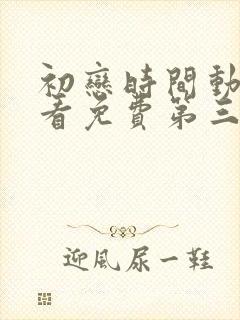 初戀時間動
看免費第三
迎風尿一鞋